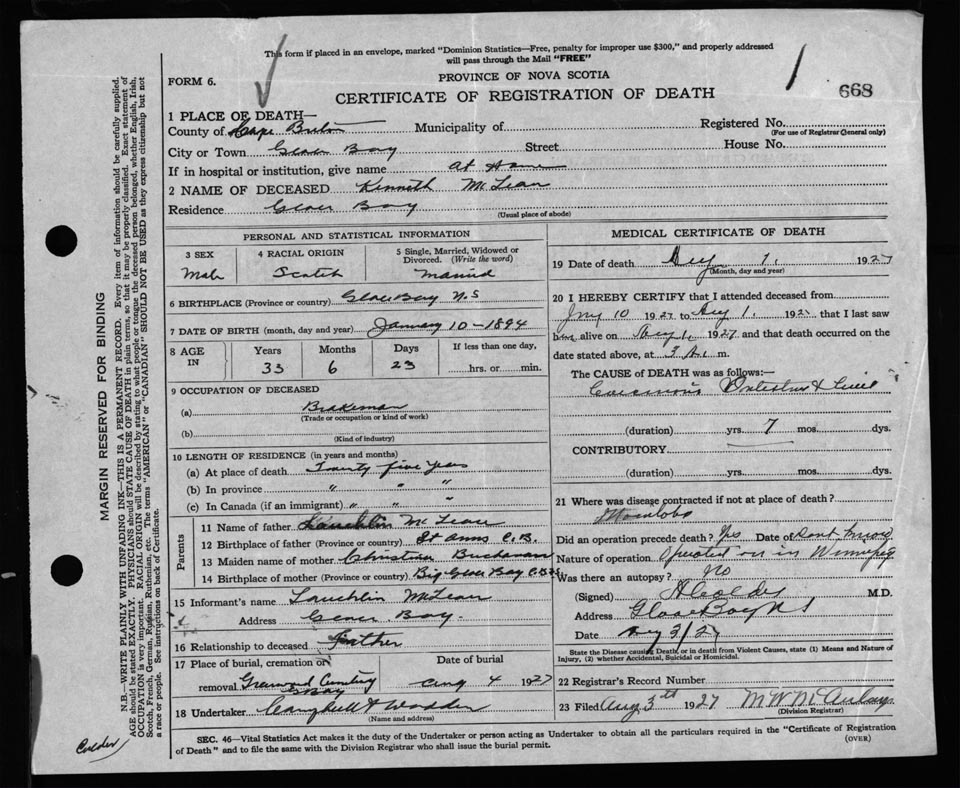 This form if placed in an envelope, marked "Dominion Statistics—Free, penalty for improper use $300," and properly addressed
will pass through the Mail "FREE"
FORM 6.
PROVINCE OF NOVA SCOTIA
668
CERTIFICATE OF REGISTRATION OF DEATH
1 PLACE OF DEATH—
County of Cape Breton Municipality of Registered No.
(For use of Registrar General only)
City or Town Glace Bay Street House No.
If in hospital or institution, give name At Home
2 NAME OF DECEASED Kenneth McLean
Residence Glace Bay
(Usual place of abode)
PERSONAL AND STATISTICAL INFORMATION
3 SEX
Male
4 RACIAL ORIGIN
Scotch
5 Single, Married, Widowed or
Divorced. (Write the word)
Married
6 BIRTHPLACE (Province or country) Glace Bay N.S
7 DATE OF BIRTH (month, day and year) January 10 - 1894
8 AGE
IN
Years
33
Months
6
Days
23
If less than one day,
hrs. or min.
9 OCCUPATION OF DECEASED
(a) Brakeman
(Trade or occupation or kind of work)
(b)
(Kind of industry)
10 LENGTH OF RESIDENCE (in years and months)
(a) At place of death Twenty five years
(b) In province " " "
(c) In Canada (if an immigrant) " " "
Parents
11 Name of father Lauchlin McLean
12 Birthplace of father (Province or country) St Anns C.B.
13 Maiden name of mother Christina Buchanan
14 Birthplace of mother (Province or country) Big Glace Bay C.B.
15 Informant's name Lauchlin McLean
Address Glace Bay.
16 Relationship to deceased Father
17 Place of burial, cremation or
removal Greenwood Cemetery
G Bay
Date of burial
Aug 4 1927
18 Undertaker Campbell & Wadden
(Name and address)
MEDICAL CERTIFICATE OF DEATH
19 Date of death Aug 1. 1927
(Month, day and year)
20 I HEREBY CERTIFY that I attended deceased from
July 10 1927 to Aug 1. 192 that I last saw
him alive on Aug 1, 1927 and that death occurred on
date stated above, at 3 A. m.
The CAUSE OF DEATH was as follows:—
Carcinoma Intestine & Liver
(duration) yrs. 7 mos. dys.
CONTRIBUTORY
(duration) yrs. mos. dys.
21 Where was disease contracted if not at place of death?
Manitoba
Did an operation precede death? Yes Date of Dont know
Nature of operation Operated on in Winnipeg
Was there an autopsy? No
(Signed) M.D.
Address Glace Bay N S
Date Aug 3/27
State the Disease causing Death, or in death from Violent Causes, state (1) Means and Nature of
Injury, (2) whether Accidental, Suicidal or Homicidal.
22 Registrar's Record Number
23 Filed Aug 3th 1927 M W McAulay
(Division Registrar)
SEC. 46—Vital Statistics Act makes it the duty of the Undertaker or person acting as Undertaker to obtain all the particulars required in the "Certificate of Registration
of Death" and to file the same with the Division Registrar who shall issue the burial permit.
(OVER)
MARGIN RESERVED FOR BINDING
N.B.—WRITE PLAINLY WITH UNFADING INK—THIS IS A PERMANENT RECORD. Every item of information should be carefully supplied.
AGE should be stated EXACTLY. PHYSICIANS should STATE CAUSE OF DEATH in plain terms, so that it may be properly classified. Exact statement of
OCCUPATION is very important. RACIAL ORIGIN will be described by stating to what people or tongue the deceased person belonged, whether English, Irish,
Scotch, French, German, Russian, Ruthenian, etc. The terms "AMERICAN" or "CANADIAN" SHOULD NOT BE USED as they express citizenship but not
a race or people. See instructions on back of Certificate.
Calder